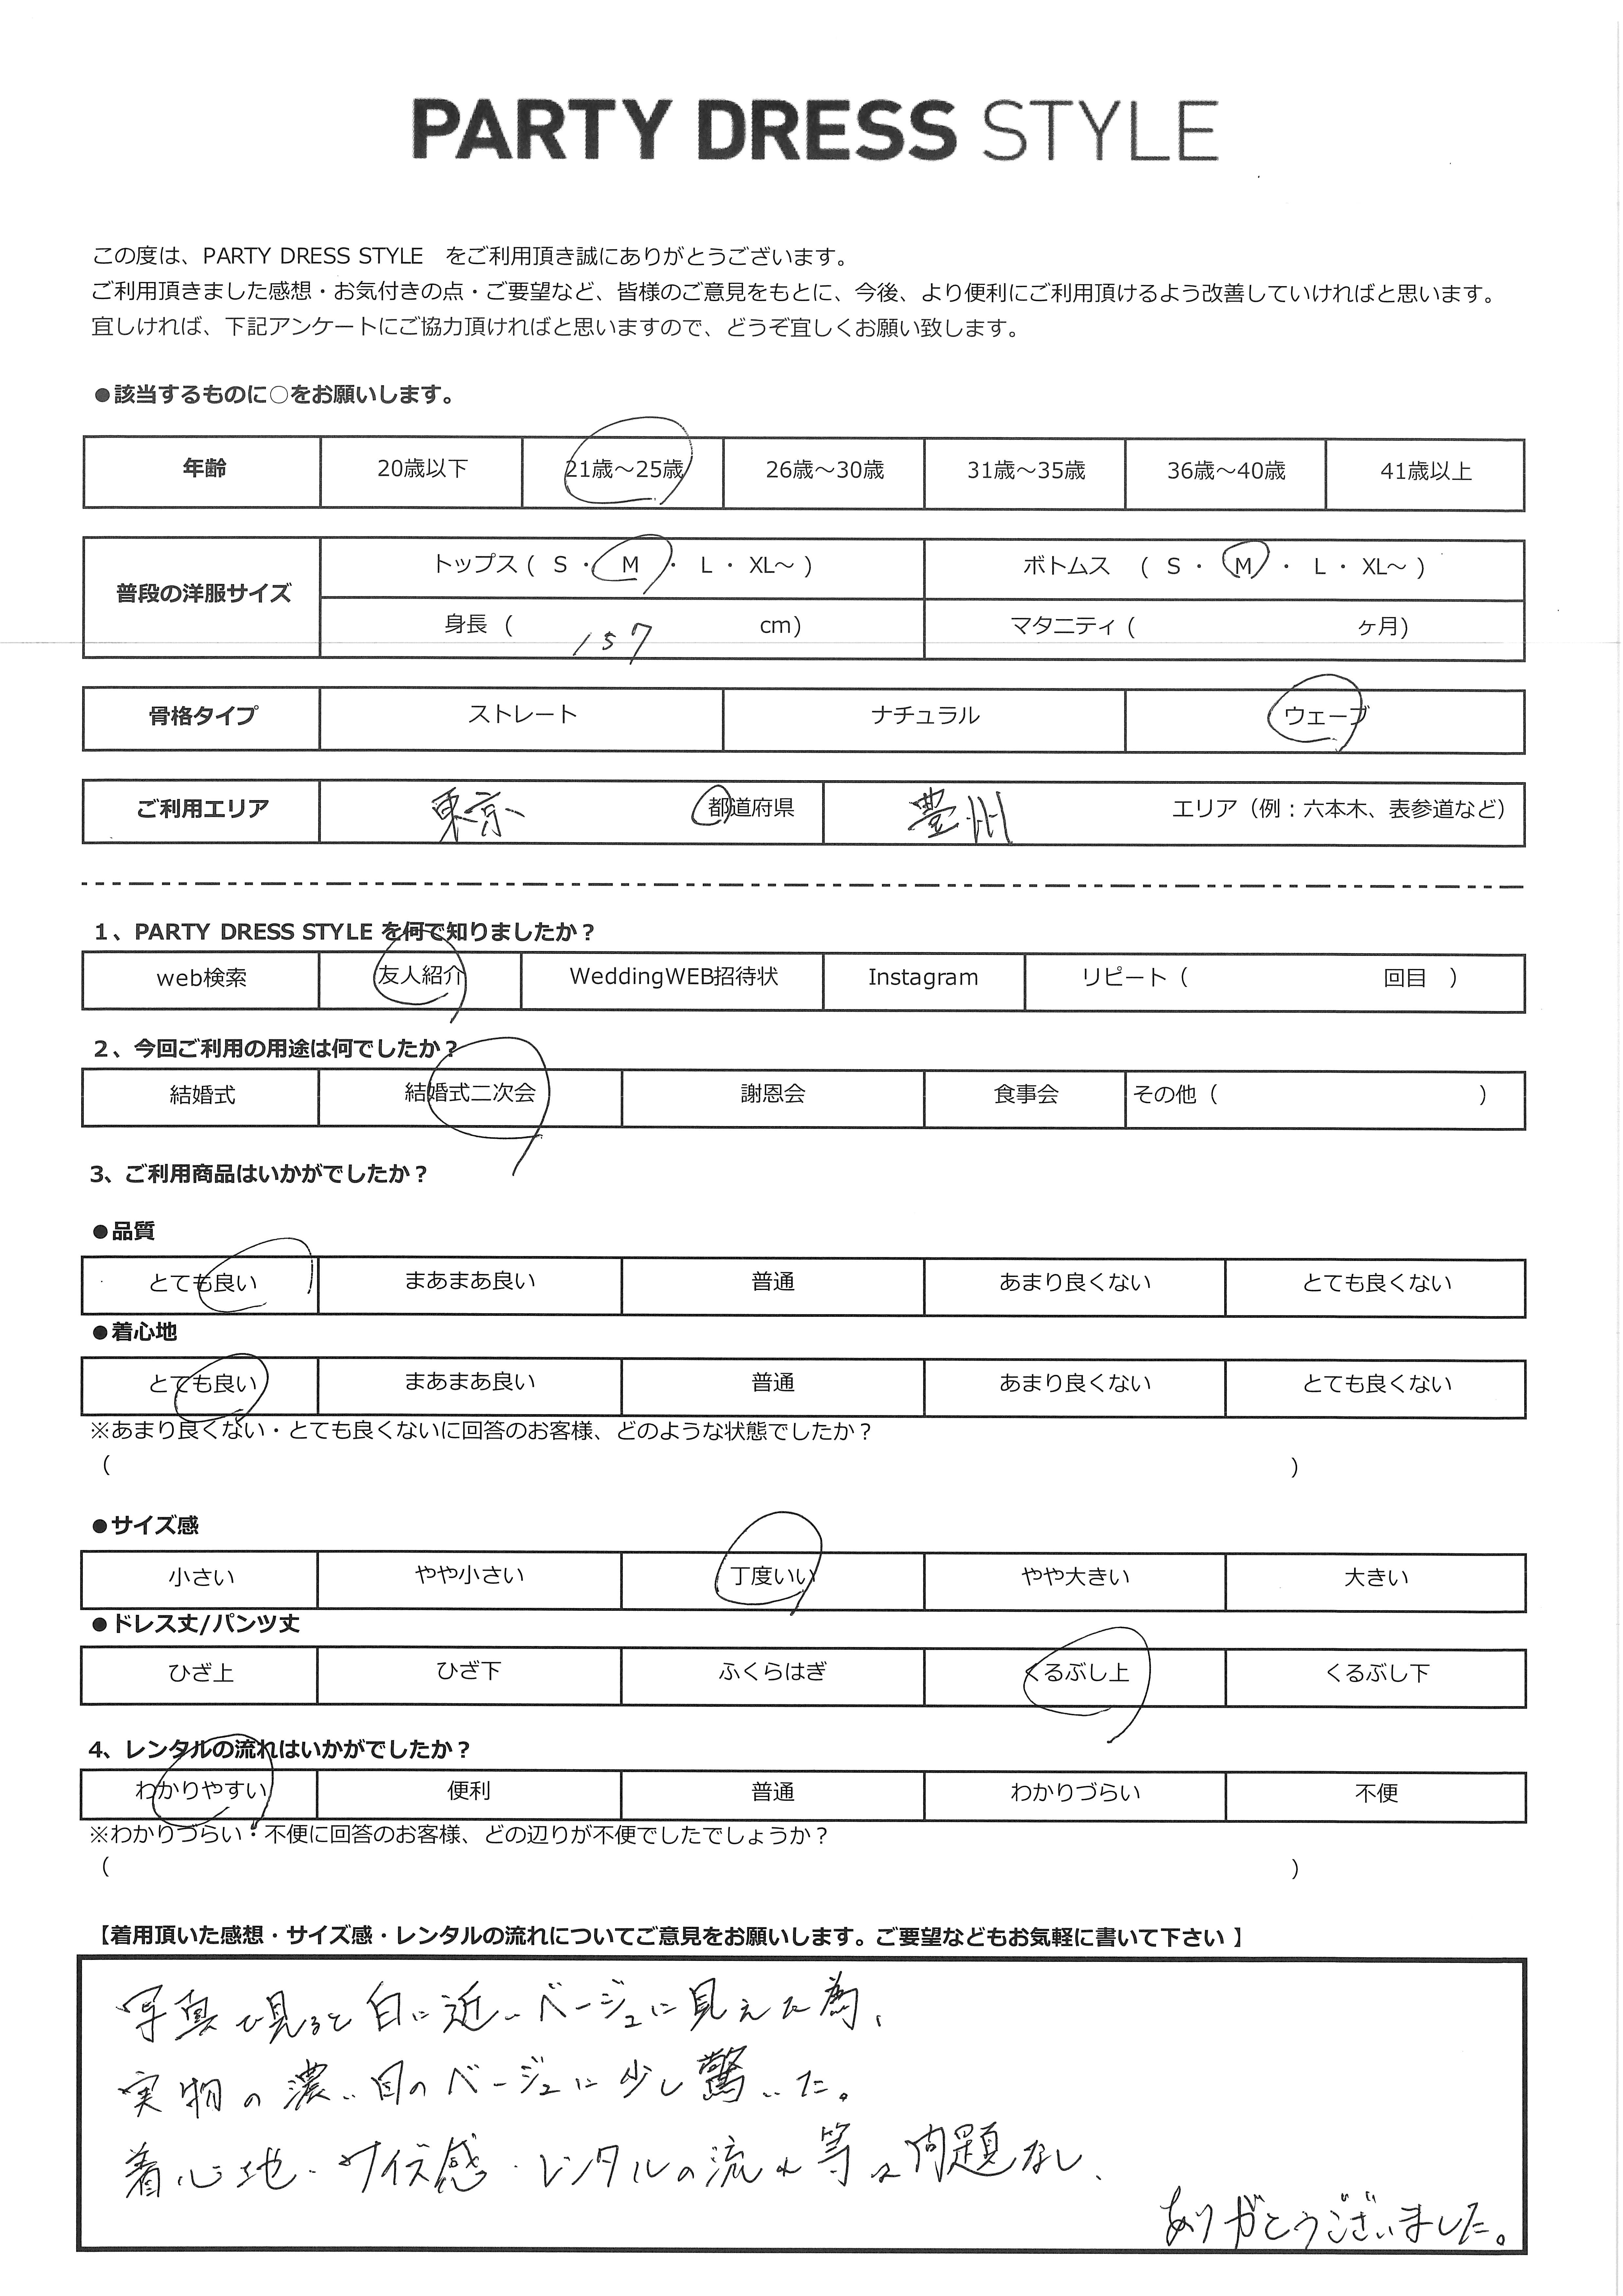 PARTY DRESS STYLE
この度は、PARTY DRESS STYLE　をご利用頂き誠にありがとうございます。
ご利用頂きました感想・お気付きの点・ご要望など、皆様のご意見をもとに、今後、より便利にご利用頂けるよう改善していければと思います。
宜しければ、下記アンケートにご協力頂ければと思いますので、どうぞ宜しくお願い致します。
●該当するものに○をお願いします。
年齢 20歳以下 21歳～25歳 26歳～30歳 31歳～35歳 36歳～40歳 41歳以上
普段の洋服サイズ トップス ( S ・ M ・ L ・ XL～ ) ボトムス ( S ・ M ・ L ・ XL～ )
身長 ( 157 cm) マタニティ ( ヶ月)
骨格タイプ ストレート ナチュラル ウェーブ
ご利用エリア 東京 都道府県 豊州 エリア（例：六本木、表参道など）
1、PARTY DRESS STYLE を何で知りましたか？
web検索 友人紹介 WeddingWEB招待状 Instagram リピート（ 回目 ）
2、今回ご利用の用途は何でしたか？
結婚式 結婚式二次会 謝恩会 食事会 その他（ ）
3、ご利用商品はいかがでしたか？
●品質
とても良い まあまあ良い 普通 あまり良くない とても良くない
●着心地
とても良い まあまあ良い 普通 あまり良くない とても良くない
※あまり良くない・とても良くないに回答のお客様、どのような状態でしたか？
（ ）
●サイズ感
小さい やや小さい 丁度いい やや大きい 大きい
●ドレス丈/パンツ丈
ひざ上 ひざ下 ふくらはぎ くるぶし上 くるぶし下
4、レンタルの流れはいかがでしたか？
わかりやすい 便利 普通 わかりづらい 不便
※わかりづらい・不便に回答のお客様、どの辺りが不便でしたでしょうか？
（ ）
【着用頂いた感想・サイズ感・レンタルの流れについてご意見をお願いします。ご要望などもお気軽に書いて下さい 】
写真で見ると白に近いベージュに見えた為、
実物の濃い目のベージュに少し驚いた。
着心地・サイズ感・レンタルの流れ等は問題なし、
ありがとうございました。